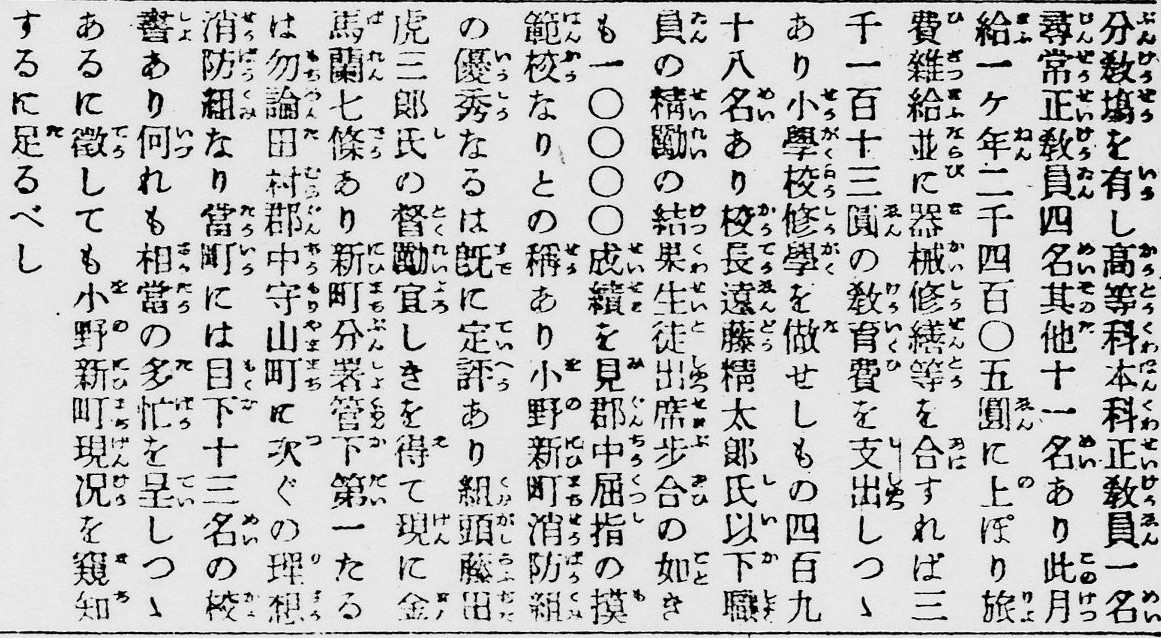 分敎塲を有し高等科本科正敎員一名
尋常正敎員四名其他十一名あり此月
給一ヶ年二千四百〇五圓に上ぼり旅
費雜給並に器械修繕等を合すれば三
千一百十三圓の敎育費を支出しつゝ
あり小學校修學を做せしもの四百九
十八名あり校長遠藤精太郎氏以下職
員の精勵の結果生徒出席步合の如き
も一〇〇〇〇成績を見郡中屈指の摸
範校なりとの稱あり小野新町消防組
の優秀なるは旣に定評あり組頭藤田
虎三郎氏の督勵宜しきを得て現に金
馬蘭七條あり新町分署管下第一たる
は勿論田村郡中守山町に次ぐの理想
消防組なり當町には目下十三名の校
書あり何れも相當の多忙を呈しつゝ
あるに徵しても小野新町現况を窺知
するに足るべし